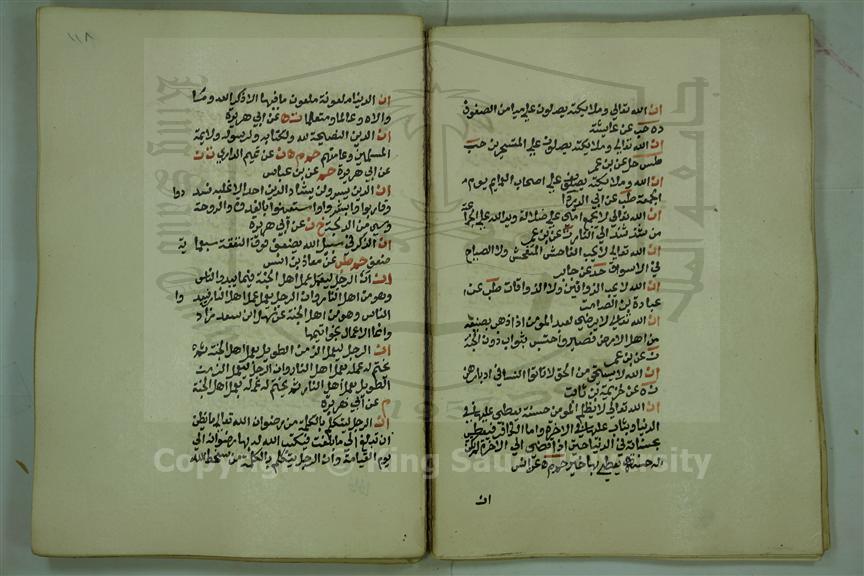 ان الله تعالى وملايكته يصلون على ميامن الصفوف
ده حب عن عايشة
ان الله تعالى وملايكته يصلون على المتسحرين حب
طس حل عن بن عمر
ان الله وملايكته يصلون على اصحاب العمايم يوم
الجمعة طب عن ابي الدردا
ان الله تعالى لا يجمع امتي على ضلالة ويد الله على الجماعة
من شذ شذ الى النار ت عن بن عمر
ان الله تعالى لا يحب الفاحش المتفحش ولا الصياح
في الاسواق خد عن جابر
ان الله لا يحب الذواقين ولا الذواقات طب عن
عبادة بن الصامت
ان الله تعالى لا يرضى لعبده المومن اذا ذهب بصفيه
من اهل الارض فصبر واحتسب بثواب دون الجنة
ن عن بن عمر
ان الله لا يستحي من الحق لا تاتوا النسا في ادبارهن
ن ه عن خزيمة بن ثابت
ان الله تعالى لا يظلم المومن حسنة يعطى عليها في
الدنيا ويثاب عليها في الاخرة واما الكافر فيعطى
بحسناته في الدنيا حتى اذا افضى الى الاخرة لم تكن
له حسنة يعطى بها خيرا حم م عن انس
ان
١١٨
ان الدنيا ملعونة ملعون ما فيها الا ذكر الله وما
والاه وعالما ومتعلما ت ه عن ابي هريرة
ان الدين النصيحة لله ولكتابه ولرسوله ولايمة
المسلمين وعامتهم حم م د ن عن تميم الداري ت ن
عن ابي هريرة حم عن بن عباس
ان الدين يسر ولن يشاد الدين احد الا غلبه فسددوا
وقاربوا وابشروا واستعينوا بالغدوة والروحة
وشي من الدلجة خ ن عن أبي هريرة
ان الذكر في سبيل الله يضعف فوق النفقة سبعماية
ضعف حم طب عن معاذ بن انس
ان الرجل ليعمل عمل أهل الجنة فيما يبدو للناس
وهو من اهل النار وان الرجل ليعمل عمل اهل النار فيما يبدوا
للناس وهو من اهل الجنة عن سهل بن سعد زاد
وانما الاعمال بخواتيمها
ان الرجل ليعمل الزمن الطويل بعمل اهل الجنة ثم
يختم له عمله بعمل اهل النار وان الرجل ليعمل الزمن
الطويل بعمل اهل النار ثم يختم له عمله بعمل اهل الجنة
م عن أبي هريرة
ان الرجل ليتكلم بالكلمة من رضوان الله تعالى ما يظن
ان تبلغ ما بلغت فيكتب الله له بها رضوانه الى
يوم القيامة وان الرجل ليتكلم بالكلمة من سخط الله
Copyright © King Saud University
King Saud University
1957